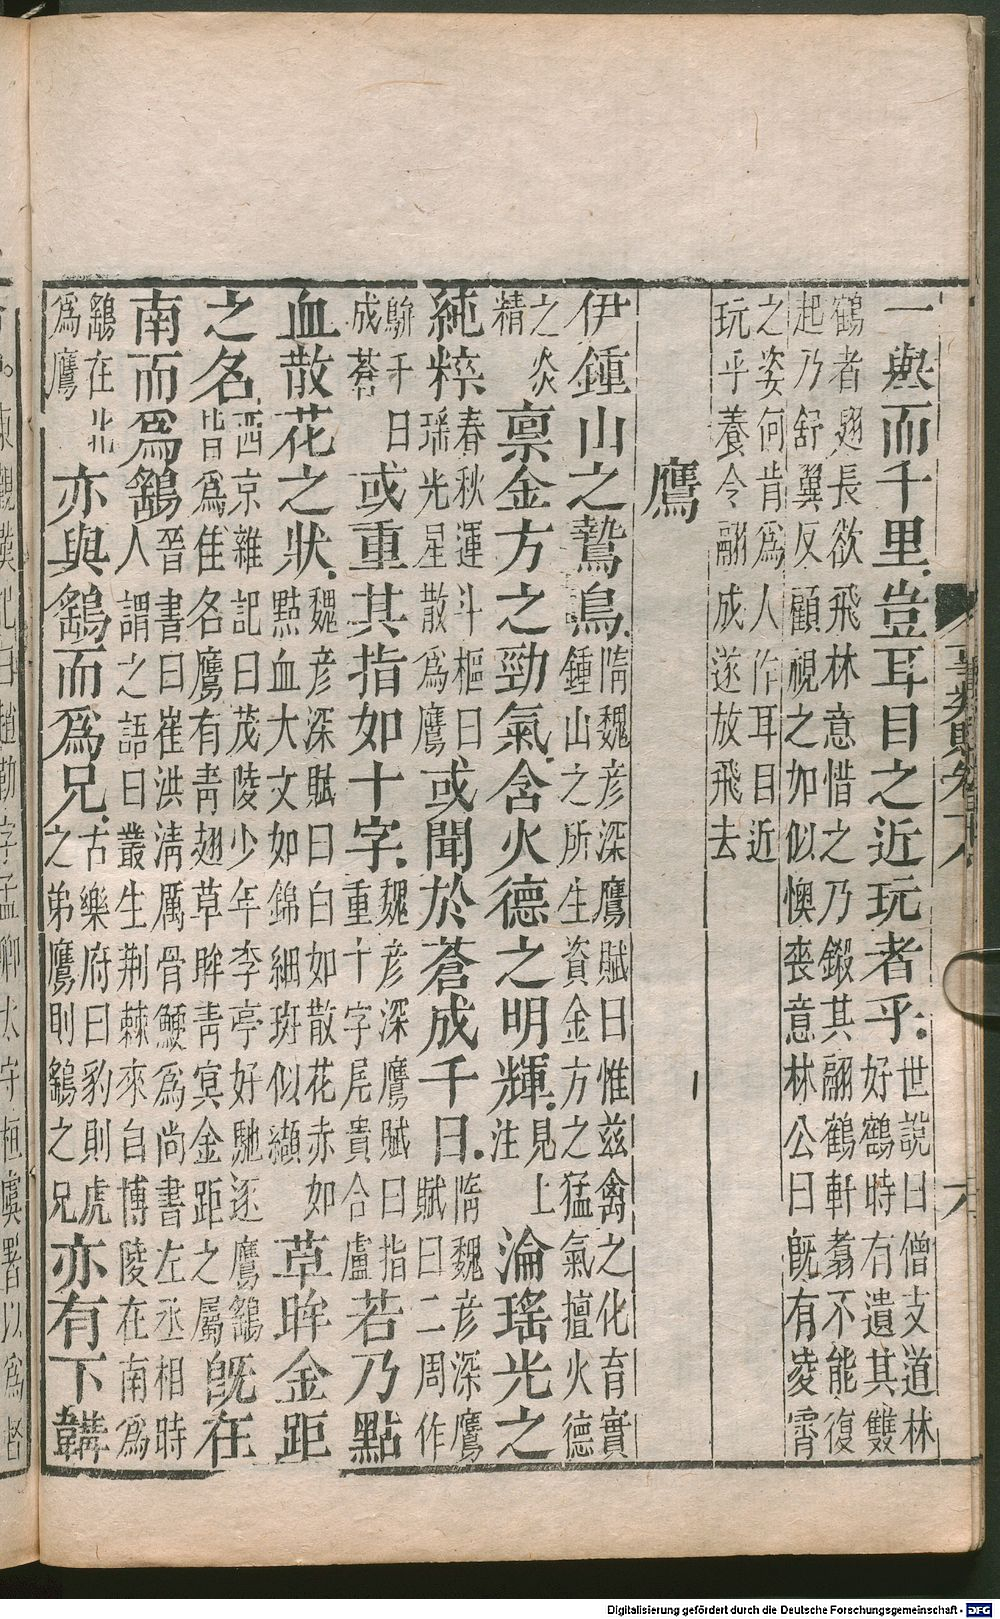 一舉而千里豈耳目之近玩者乎世說曰僧支道林好鶴時有遺其雙
鶴者翅長欲飛林意惜之乃鎩其翮鶴軒翥不能復
起乃舒翼反顧視之如似懊喪意林公曰旣有凌霄
之姿何肯爲人作耳目近
玩乎養令翮成遂放飛去
鷹
伊鍾山之鷙鳥隋魏彦深鷹賦曰惟兹禽之化育實鍾山之所生資金方之猛氣擅火德
之炎精禀金方之勁氣含火德之明輝見上注淪瑤光之
純粹春秋運斗樞曰瑶光星散爲鷹或聞於蒼成千日隋魏彦深鷹賦曰二周作
鷸千日成蒼或重其指如十字魏彦深鷹賦曰指重十字尾貴合盧若乃點
血散花之狀魏彦深賦曰白如散花赤如點血大文如錦細斑似纈草眸金距
之名西京雜記曰茂陵少年李亭好馳逐鷹鷂皆爲佳名鷹有青翅草眸青冥金距之屬旣在
南而爲鷂晉書曰崔洪清厲骨鯁爲尚書左丞相時人謂之語曰叢生荆棘來自博陵在南爲
鷂在北爲鷹亦與鷂而爲兄古樂府曰豹則虎之弟鷹則鷂之兄亦有下韝
事類賦卷十八
六
東觀漢記曰趙勤字孟卿太守桓虞署以爲督
Digitalisierung gefördert durch die Deutsche Forschungsgemeinschaft - DFG